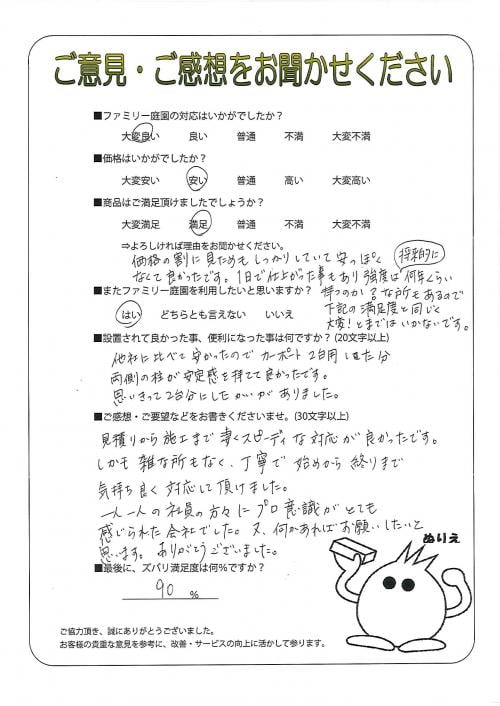 ご意見・ご感想をお聞かせください
■ファミリー庭園の対応はいかがでしたか？
大変良い 良い 普通 不満 大変不満
■価格はいかがでしたか？
大変安い 安い 普通 高い 大変高い
■商品はご満足頂けましたでしょうか？
大変満足 満足 普通 不満 大変不満
⇒よろしければ理由をお聞かせください。
価格の割に見ためもしっかりしていて安っぽく
なくて良かったです。1日で仕上がった事もあり 強度は 将来的に 何年くらい
持つのか？な所もあるので
下記の満足度と同じく
大変！とまではいかないです。
■またファミリー庭園を利用したいと思いますか？
はい どちらとも言えない いいえ
■設置されて良かった事、便利になった事は何ですか？(20文字以上)
他社に比べて安かったのでカーポート2台用にした分
両側の柱が安定感を持てて良かったです。
思いきって2台分にしたかいがありました。
■ご感想・ご要望などをお書きくださいませ。(30文字以上)
見積りから施工まで 凄くスピーディな対応が良かったです。
しかも 雑な所もなく、丁寧で 始めから 終りまで
気持ち良く 対応して頂けました。
一人一人の社員の方々に プロ意識が とても
感じられた会社でした。又、何かあればお願いしたいと
思います。ありがとうございました。
■最後に、ズバリ満足度は何％ですか？
90 %
ぬりえ
ご協力頂き、誠にありがとうございました。
お客様の貴重な意見を参考に、改善・サービスの向上に活かして参ります。